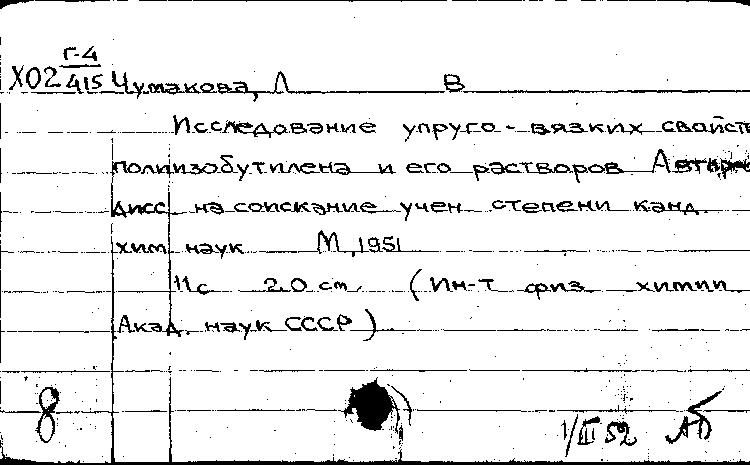 Г-4
Х02 415 Чумакова, Л В
Исследование упруго-вязких свойств
полиизобутилена и его растворов Автореф
дисс на соискание учен степени канд.
хим наук М, 1951
11 с 20 cm. (Ин-т физ химии
Акад. наук СССР)
8
1/III 52